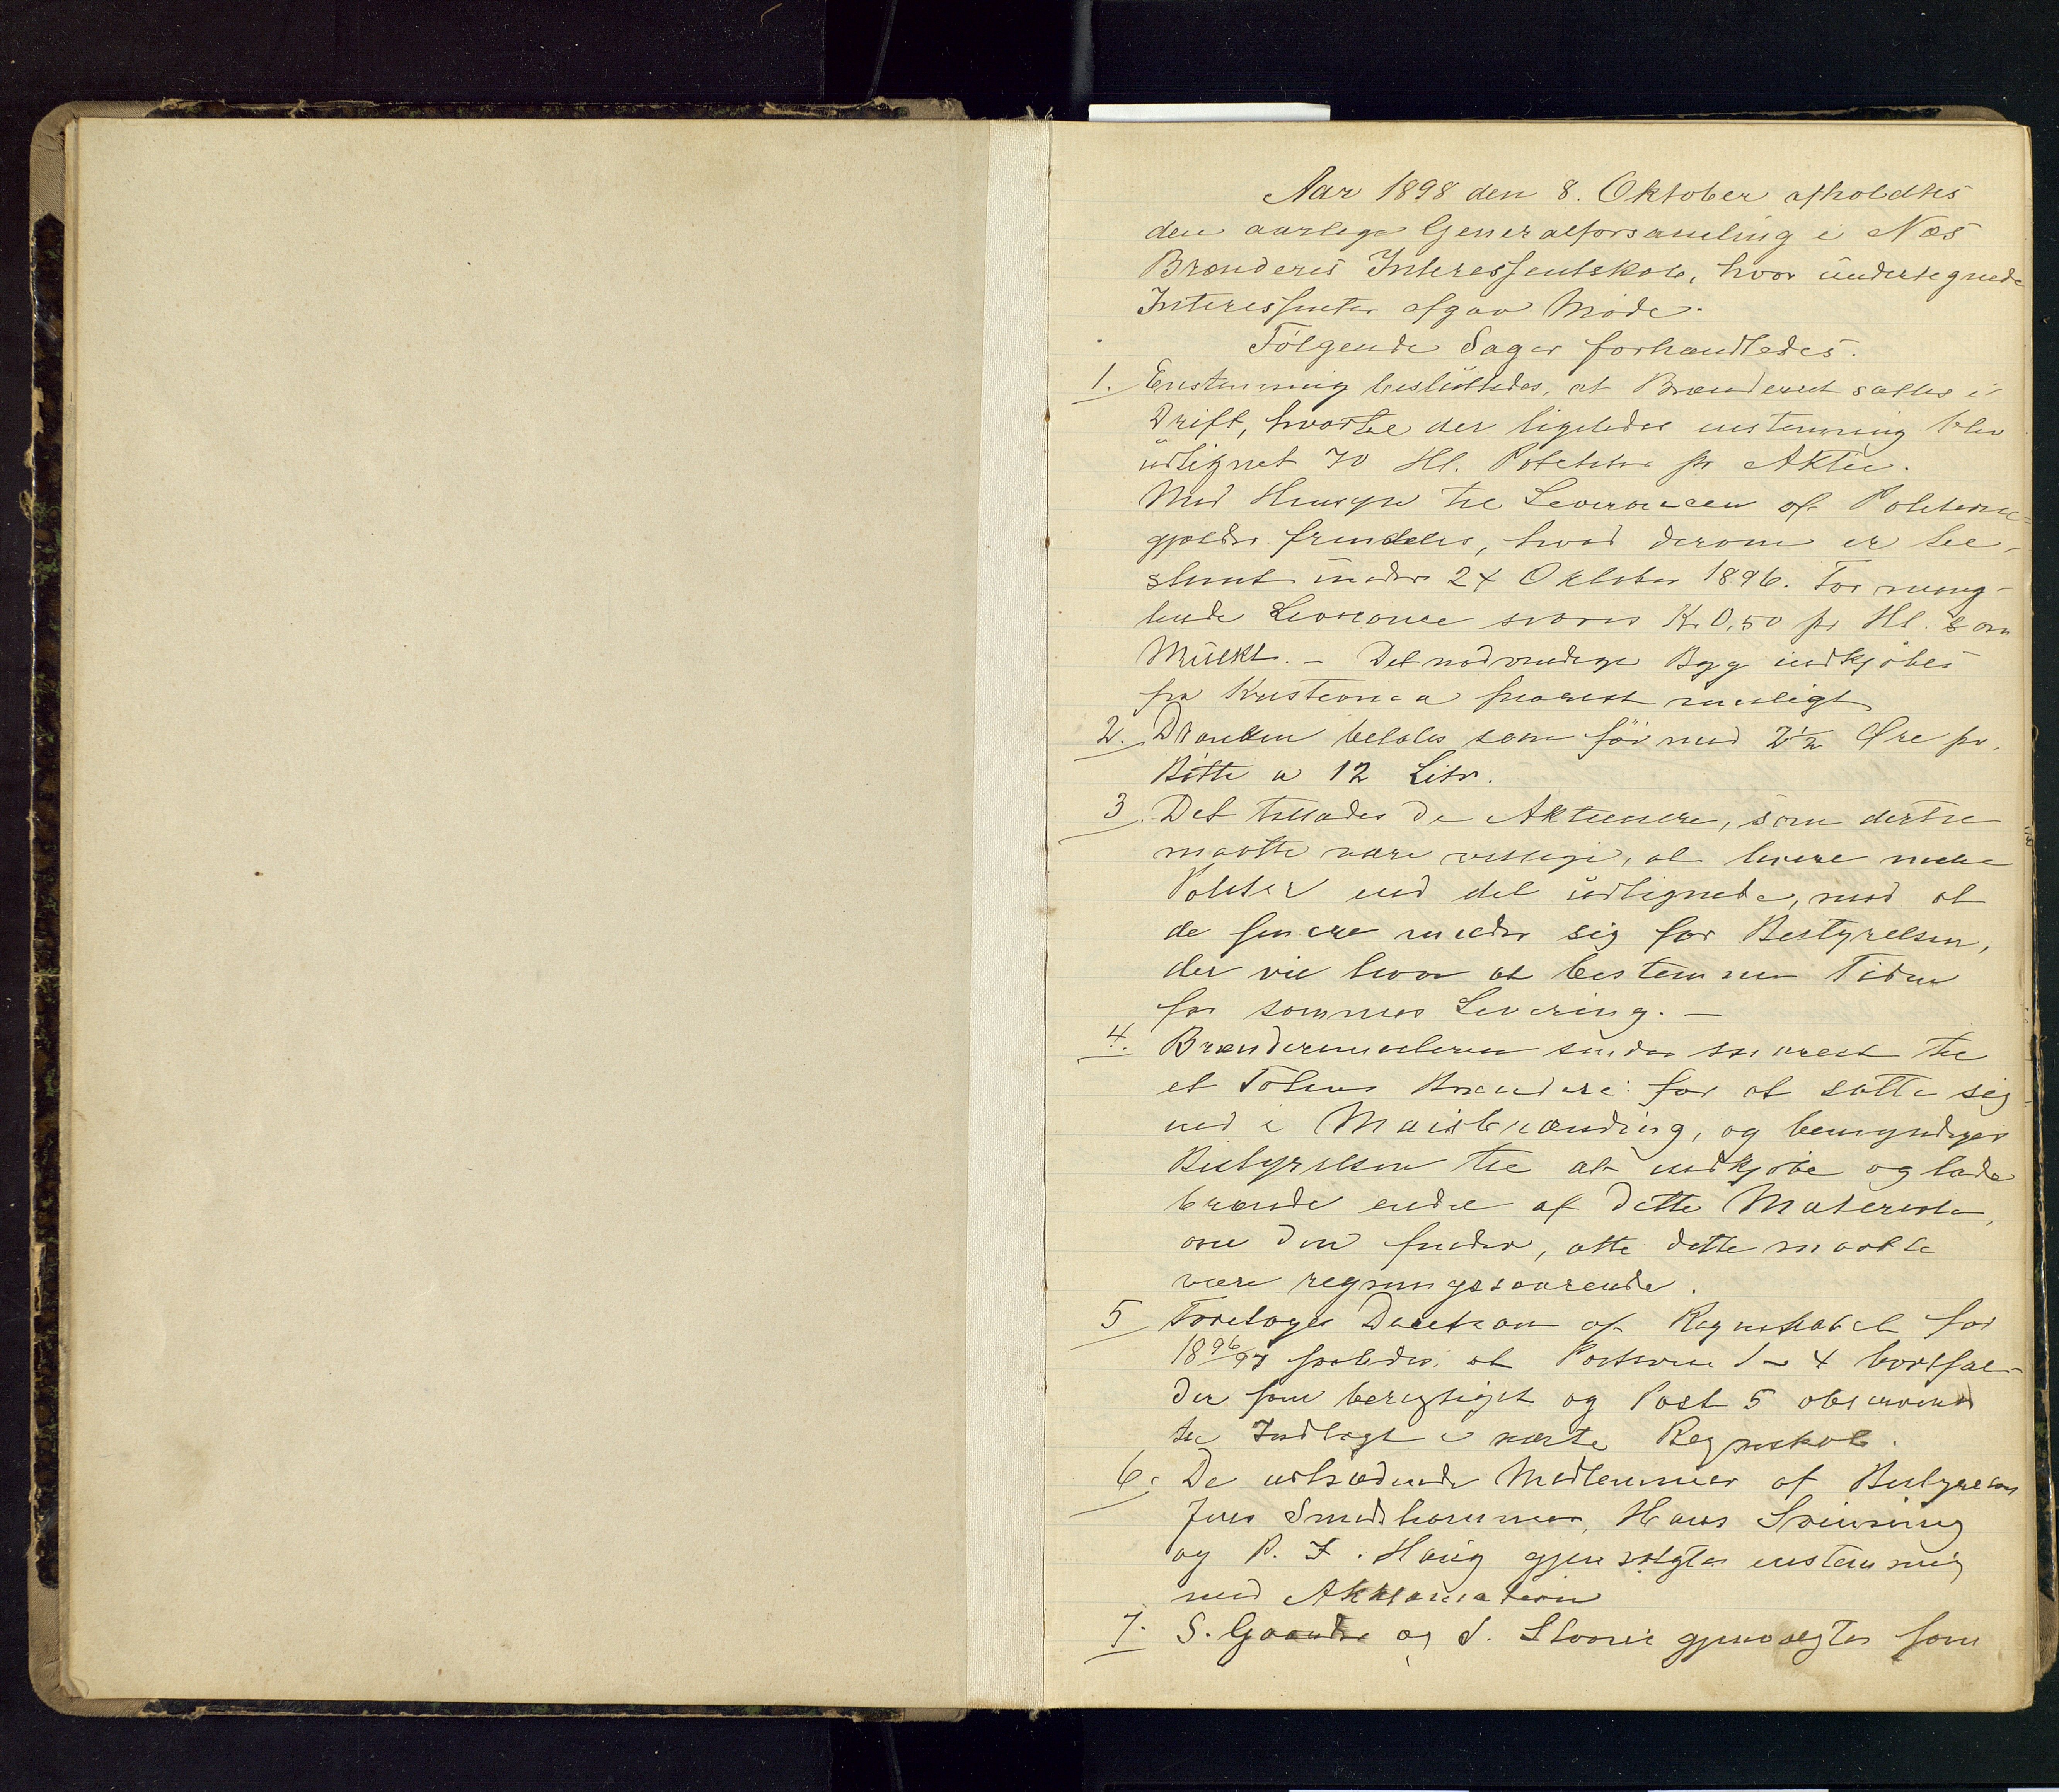 Aar 1898 den 8. Oktober afholdtes
den aarlige Generalforsamling i Næs
Brænderis Interessentskab, hvor undertegnede
Interessenter afgav Møde.
Følgende Sager forhandledes.
1. Enstemmig besluttedes, at Brænderiet sættes i
Drift, hvortil der ligeledes enstemmig blev
udlignet 70 Hl. Poteter pr Aktie.
Med Hensyn til Leverancen af Poteterne
gjælder fremdeles, hvad derom er be-
stemt under 24 Oktober 1896. For mang-
lende Leverance svares Kr 0,50 pr Hl. som
Mulkt. – Det nødvendige Byg indkjøbes
fra Kristiania snarest muligt
2. Dranken betales som før med 2½ Øre pr.
Bøtte a 12 Litr.
3. Det tillades de Aktieeiere, som dertil
maatte være villige, at levere mere
Poteter end det udlignede, mod at
de senere melder sig for Bestyrelsen,
der vil have at bestemme Tiden
for sammes Levering. –
4. Brændermesteren sendes snarest til
et Totens Brænderi for at sætte sig
ind i Maisbrænding, og bemyndiges
Bestyrelsen til at indkjøbe og lade
brænde endel af dette Materiale,
om den finder, at dette maatte
være regningssvarende.
5 Foretoges Decision af Regnskabet for
1896/97 saaledes, at Posterne 1–4 bortfal-
der som berigtiget og Post 5 observeres
til Indtægt i næste Regnskab.
6. De udtrædende Medlemmer af Bestyrelsen
Jens Smedshammer, Hans
og P. F. Haug gjenvalgtes enstemmig
med Akklamation
7. S. og S. gjenvalgtes som